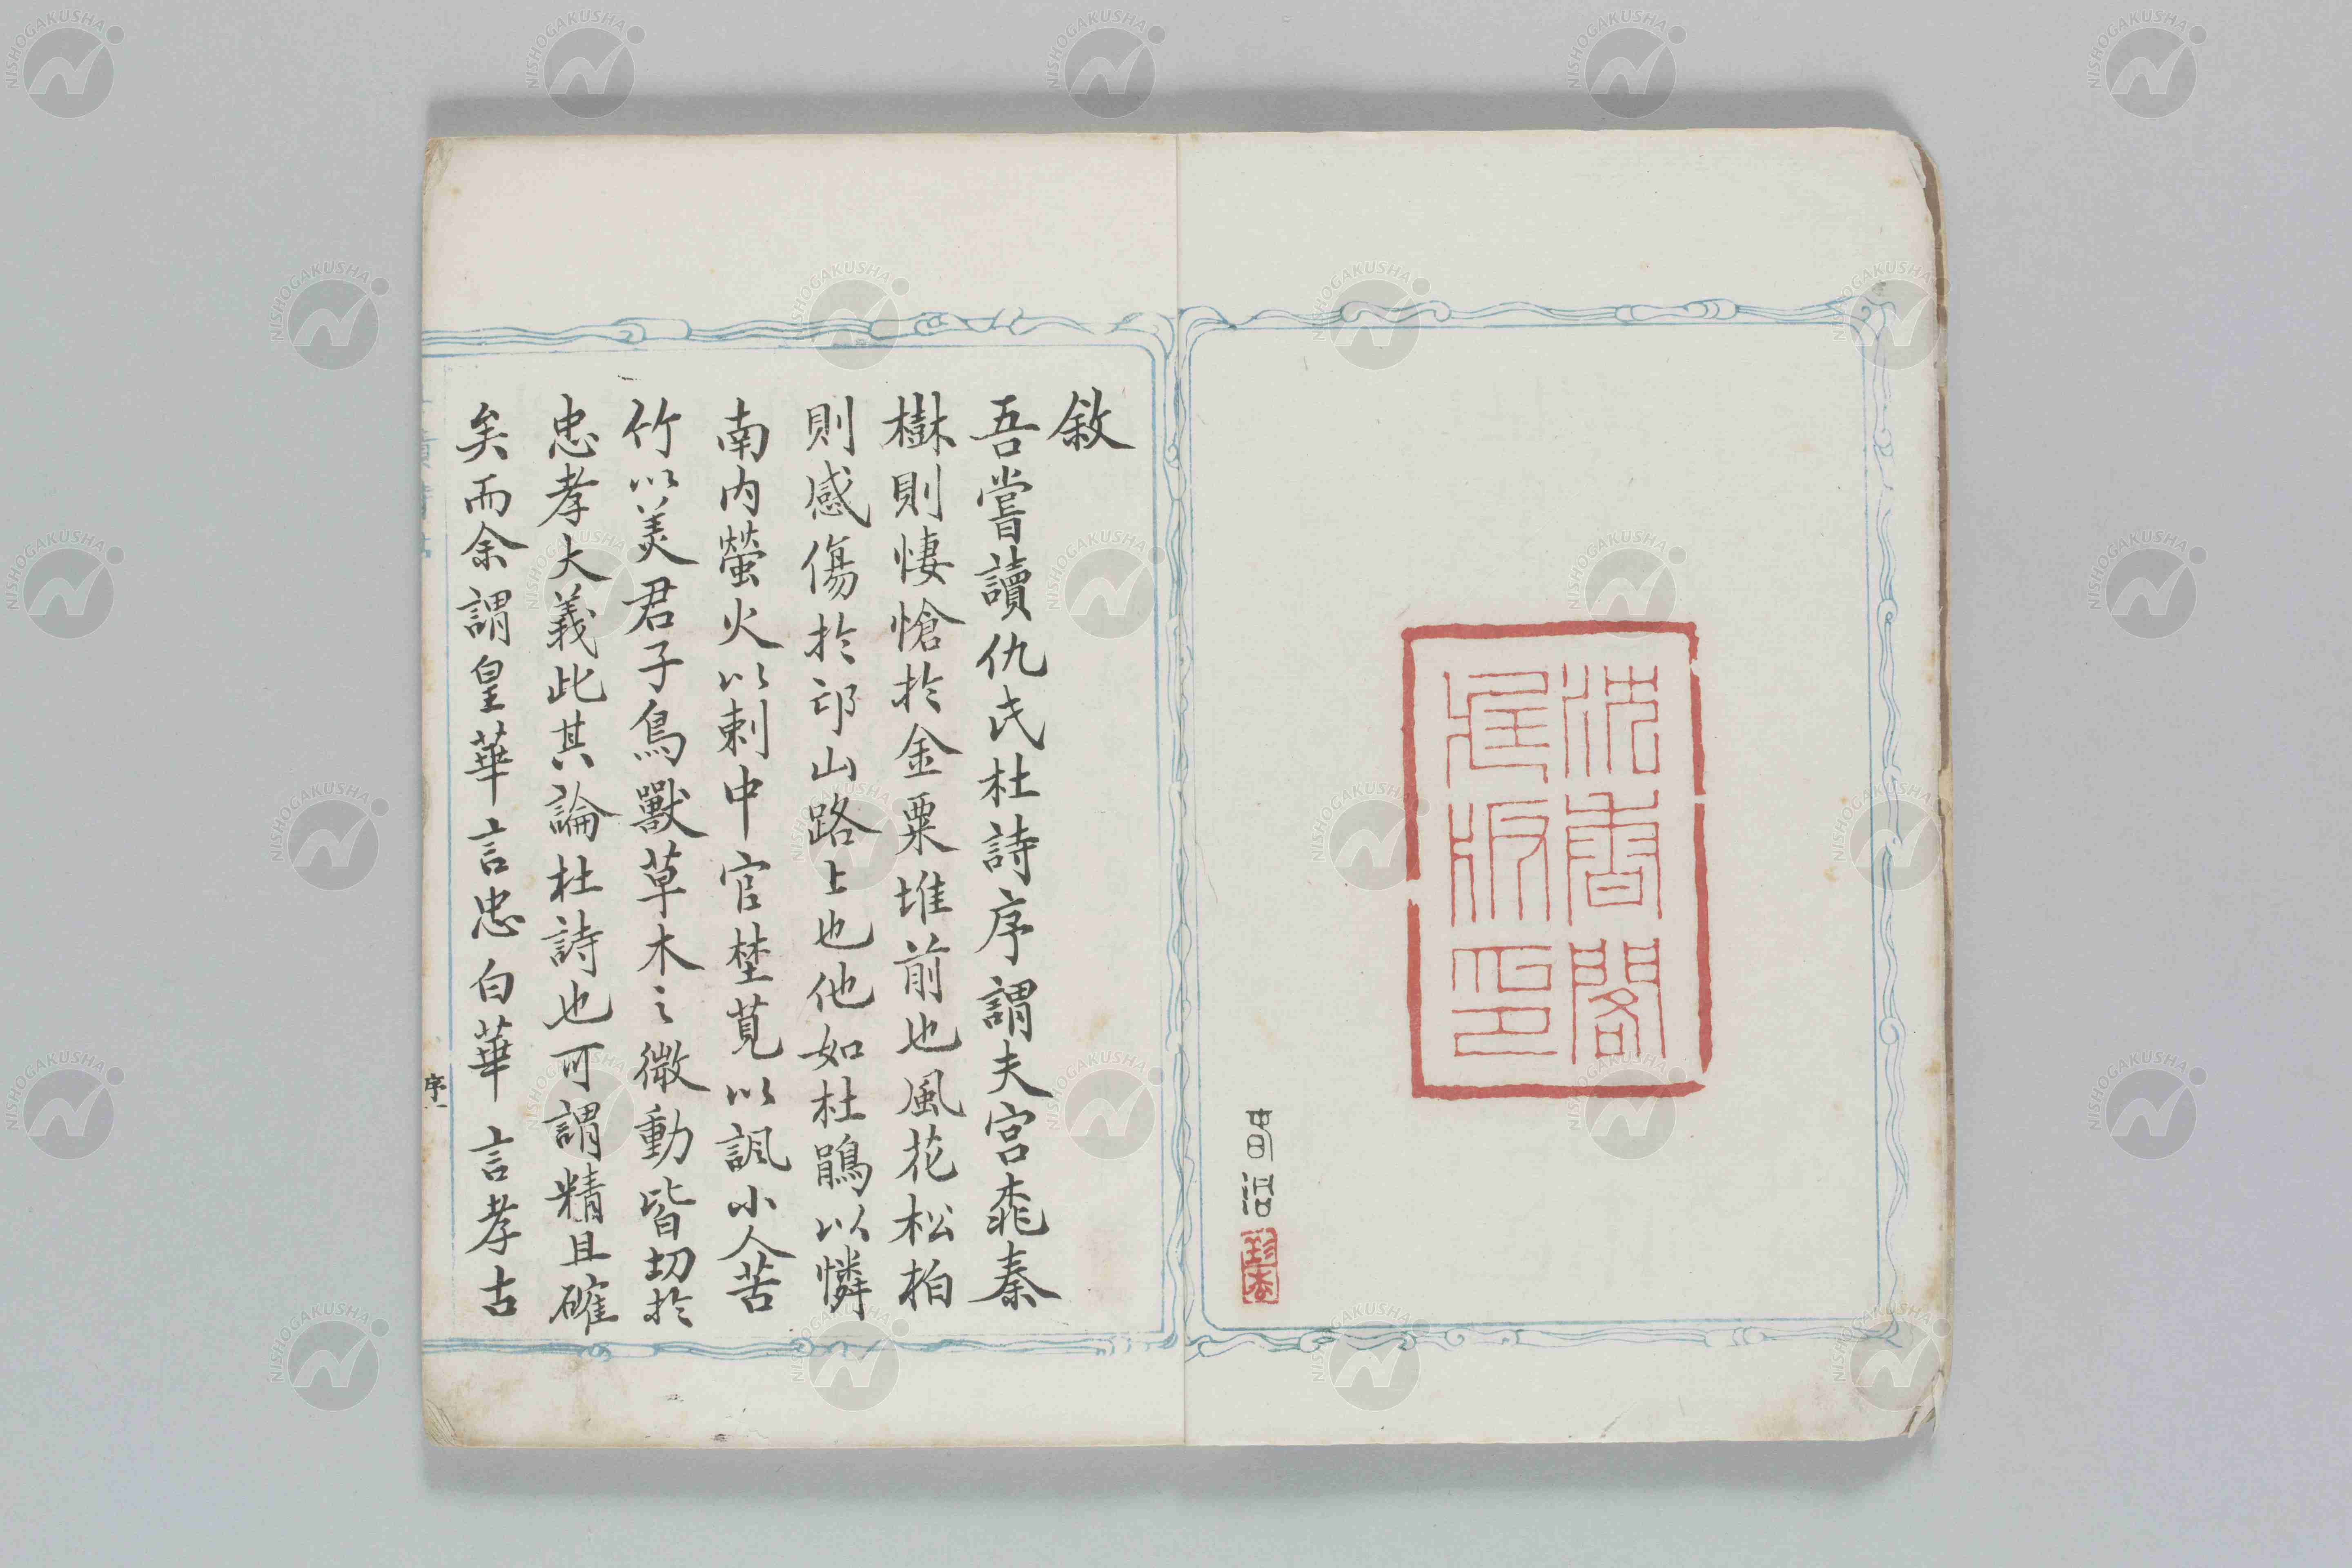 沈香閣
藏版印
敘
吾嘗讀仇氏杜詩序謂夫宮桃秦
樹則悽愴於金粟堆前也風花松柏
則感傷於邙山路上也他如杜鵑以憐
南內螢火以刺中官埜莧以諷小人苦
竹以美君子鳥獸草木之微動皆切於
忠孝大義此其論杜詩也可謂精且確
矣而余謂皇華言忠白華言孝古
序一
NISHOGAKUSHA